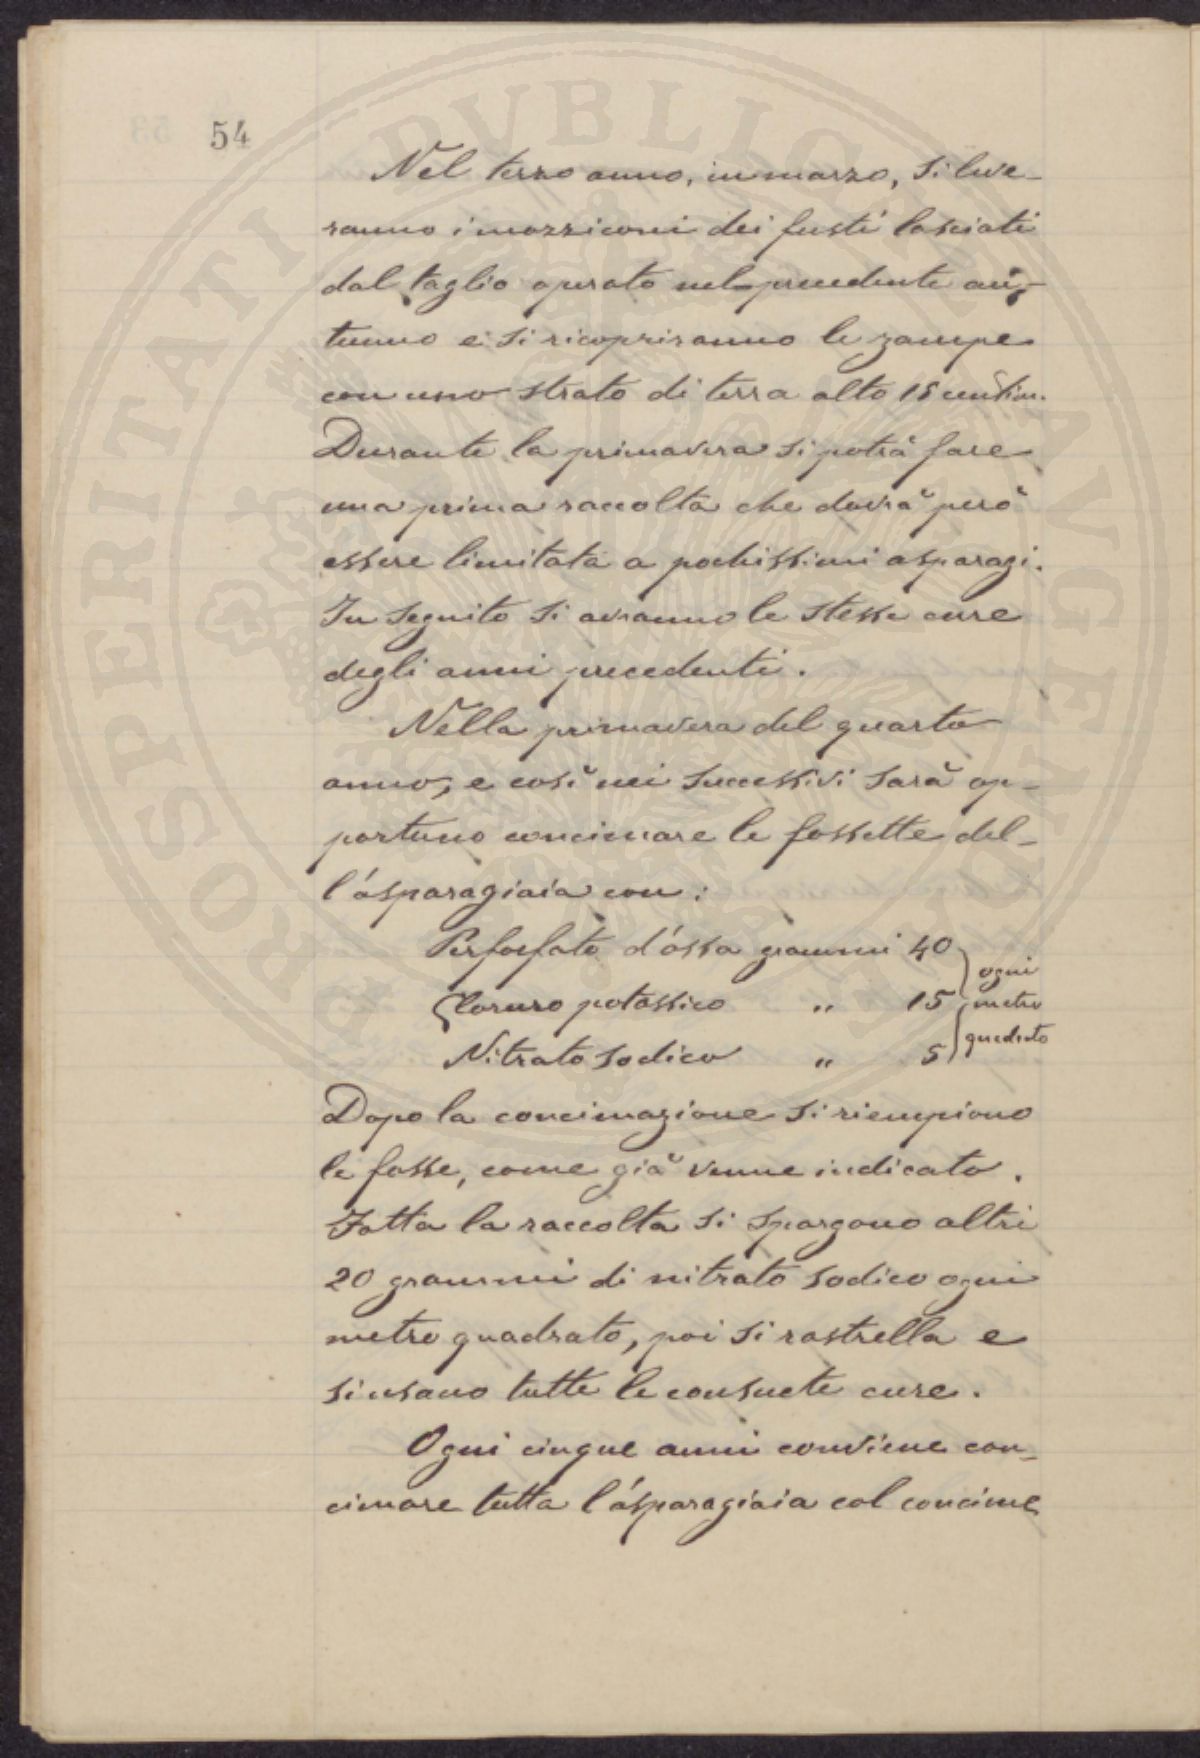 54
Nel terzo anno, in marzo, si leve-
ranno i mozziconi dei fusti lasciati
dal taglio operato nel precedente au-
tunno e si ricopriranno le zampe
con uno strato di terra alto 15 centim.
Durante la primavera si potrà fare
una prima raccolta che dovrà però
essere limitata a pochissimi asparagi.
In seguito si avranno le stesse cure
degli anni precedenti.
Nella primavera del quarto
anno, e così nei successivi sarà op-
portuno concimare le fossette del-
l'asparagiaia con:
Perfosfato d'ossa grammi 40
Cloruro potassico " 15
Nitrato sodico " 5
ogni
metro
quadrato
Dopo la concimazione si riempiono
le fosse, come già venne indicato.
Fatta la raccolta si spargono altri
20 grammi di nitrato sodico ogni
metro quadrato, poi si rastrella e
si usano tutte le consuete cure.
Ogni cinque anni conviene con-
cimare tutta l'asparagiaia col concime
PROSPERITATI PVBLICAE AVGENDAE